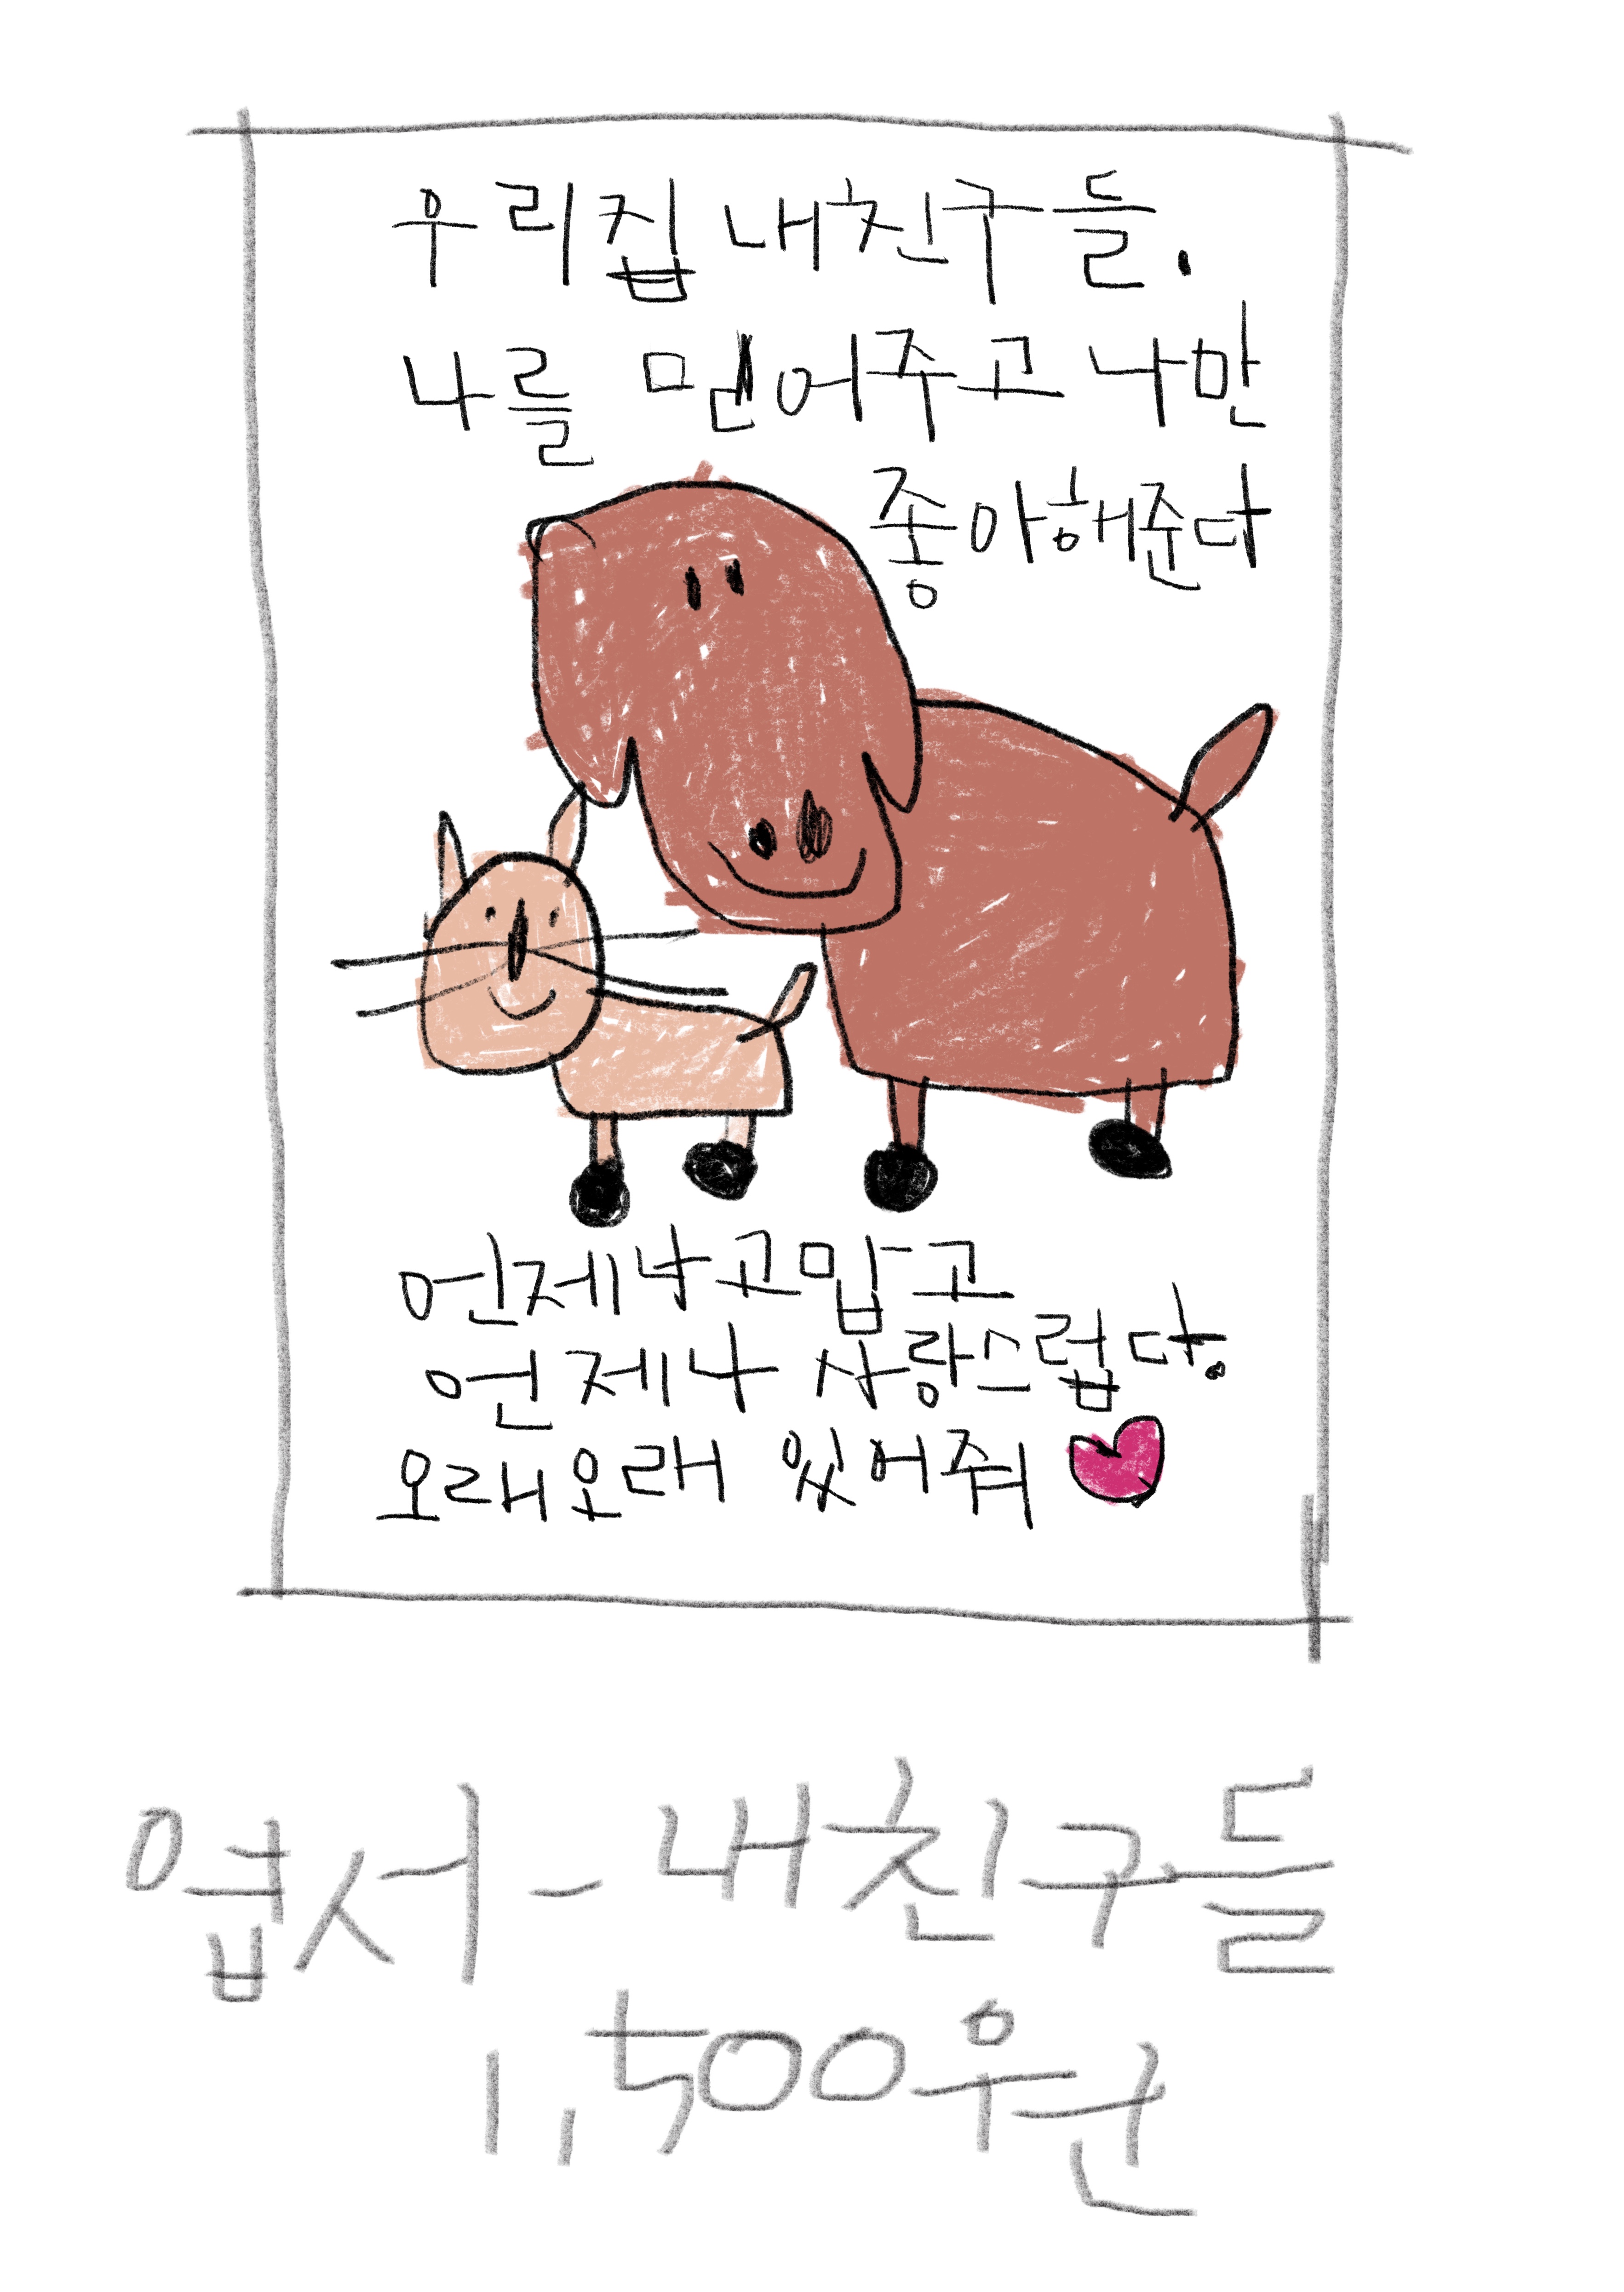 우리집 내친구들.
나를 믿어주고 나만
좋아해준다
언제나 고맙고
언제나 사랑스럽다.
오래오래 있어줘
엽서 - 내친구들
1,500원